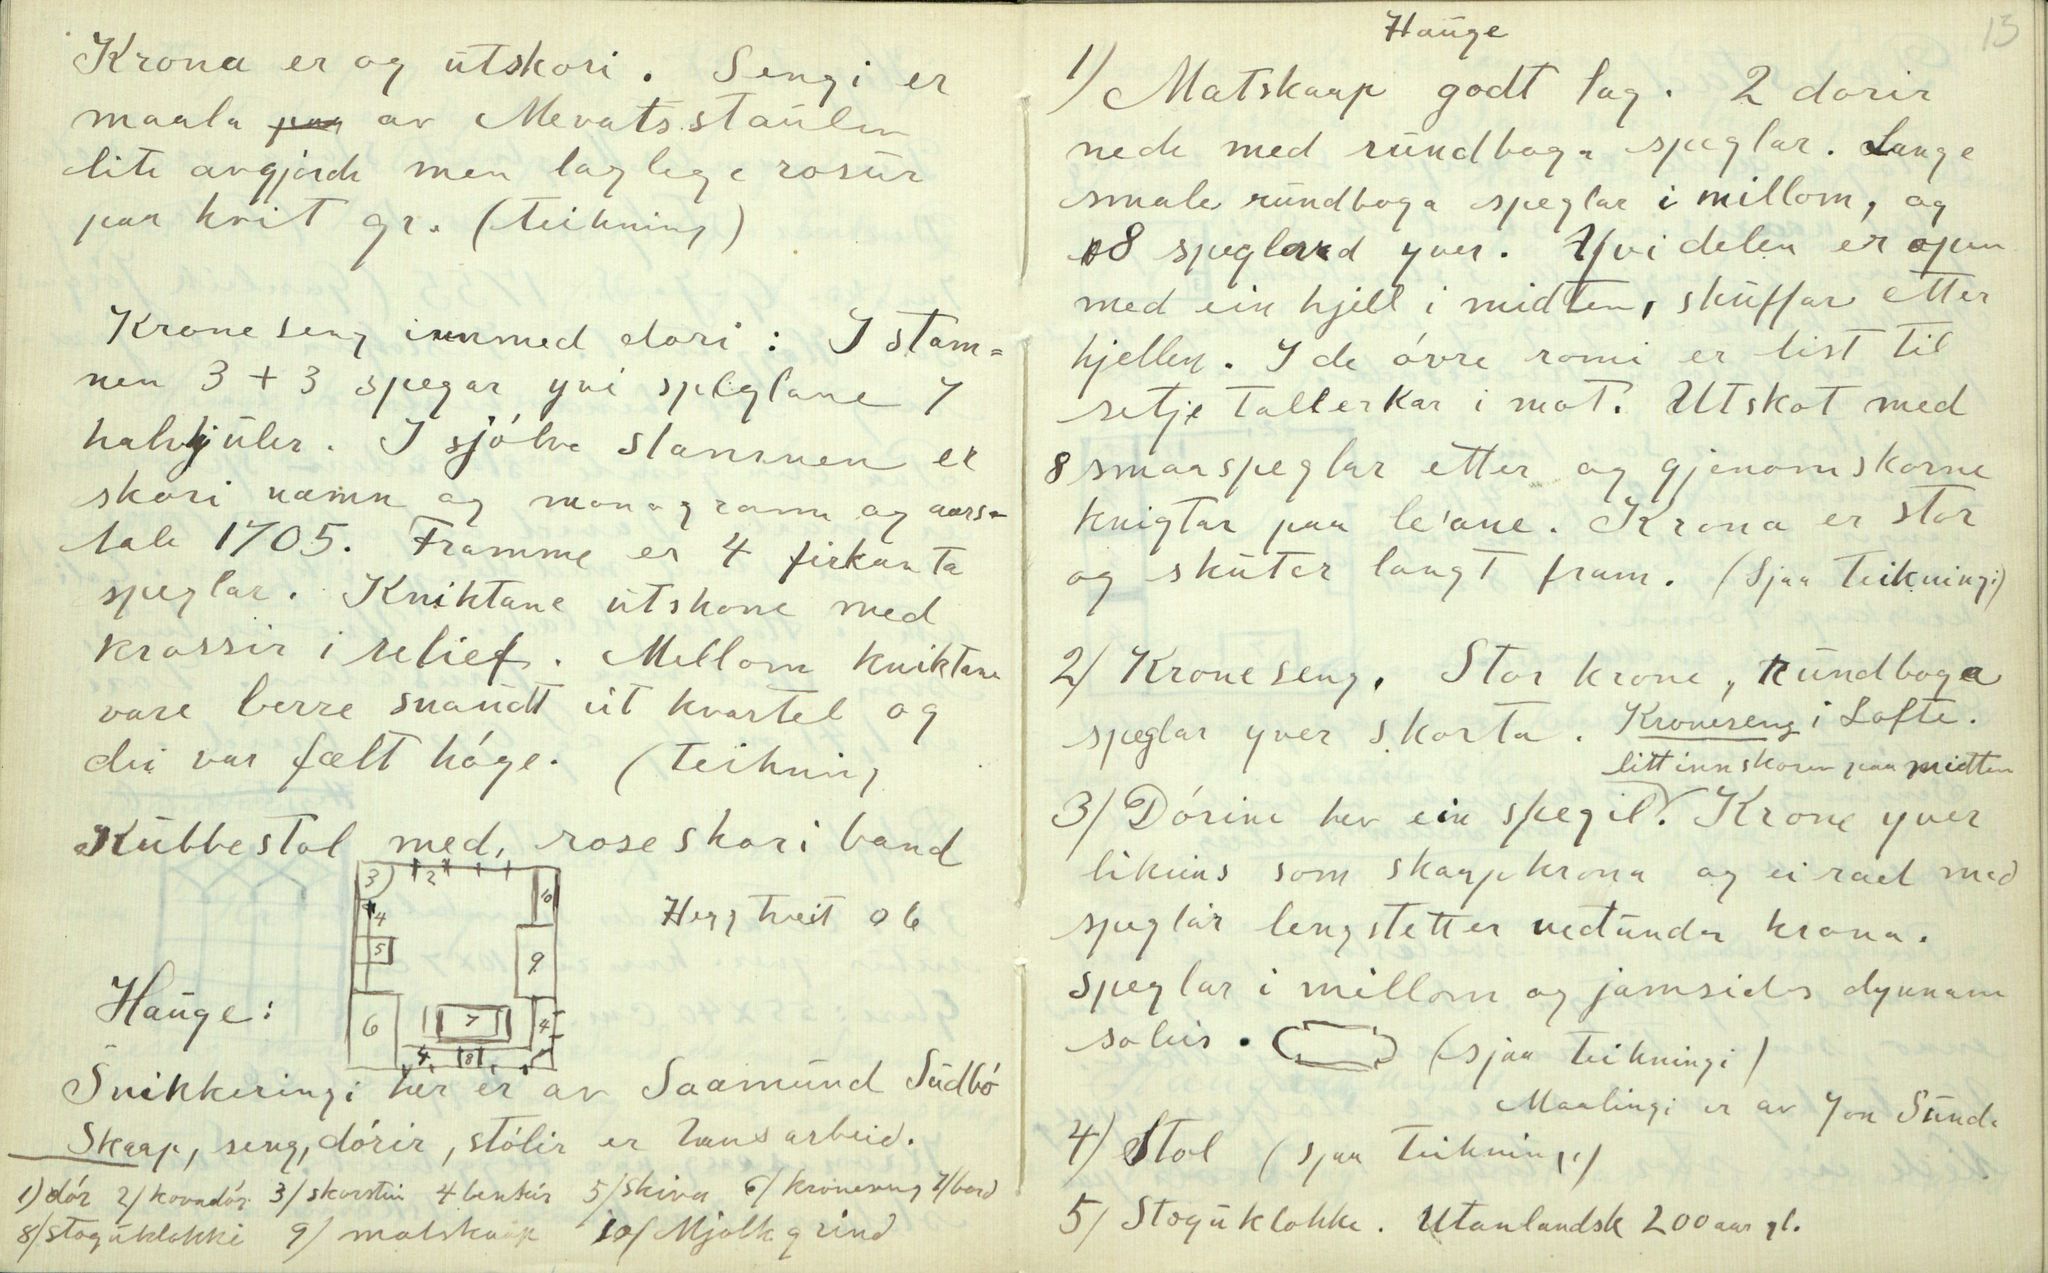 Krona er og utskori. Sengi er
maala paa av Mevatsstaulen
lite avgjorde men laglege rosur
paa kvit gr. (teikning)
Krone seng innmed dori: I stam=
nen 3 + 3 spegar yvi speglane 7
halvhjuler. I sjólve stammen er
skori namn og monogram og aars=
tale 1705. Framme er 4 firkanta
speglar. Kniktane utskorne med
krossir i relief. Mellom kniktane
vare berre snaudt eit kvartel og
dei var fælt hóge. (teikning
Kubbestol med, roseskori band
3 2 10
4
5
9
Heggtveit 06
Hauge:
6 7 4
4 8
Snikkeringi her er av Saamund Sudbó
Skaap, seng, dórir, stólir er hans arbeid.
1) dór 2/ kovadór 3/ skorstin 4 benkir 5/ skiva 6/ kroneseng 7/ bord
8/ stoguklokki 9/ matskaap 10/ Mjolkgrind
13
Hauge
1) Matskaap godt lag. 2 dorir
nede med rundboga speglar. Lange
smale rundboga speglar i millom, og
8 speglar yver. Yvi delen er open
med ein hjell i midten, skuffar etter
hjellen. I de óvre romi er list til
setje tallerkar i mot. Utskot med
8 smaaspeglar etter og gjenomskorne
knigtar paa le'ane. Krona er stor
og skuter langt fram. (Sjaa teikningi)
2/ Kroneseng. Stor krone, rundboga
speglar yver skorta. Kroneseng i Lofte.
litt innskoren paa midten
3/ Dórine hev ein spegil. Krone yver
likeins som skaapkrona og ei rad med
speglar lengstetter nedunda krona.
Speglar i millom og jamsides dynnam
soleis. (sjaa teikningi)
Maalingi er av Jon Sunde
4/ Stol (sjaa teikningi)
5/ Stoguklokke. Utanlandsk 200 aar gl.